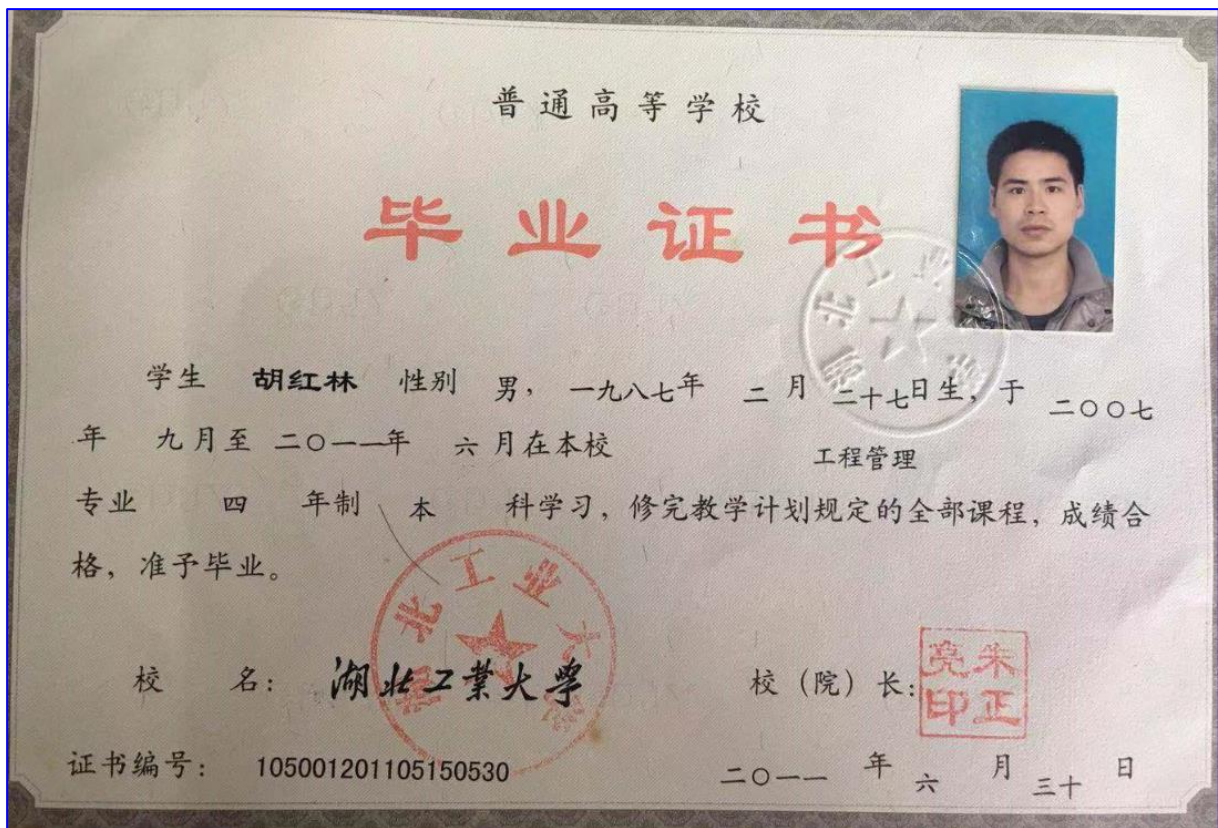 普通高等学校
毕业证书
学生 胡红林 性别 男，一九八七年 二月 二十七日生，于 二〇〇七
年 九月至 二〇一一年 六月在本校 工程管理
专业 四 年制 本 科学习，修完教学计划规定的全部课程，成绩合
格，准予毕业。
湖北工业大学
湖北工业大学
校 名：湖北工業大學
校（院）长：
朱正亮印
证书编号：105001201105150530
二〇一一 年 六 月 三十 日